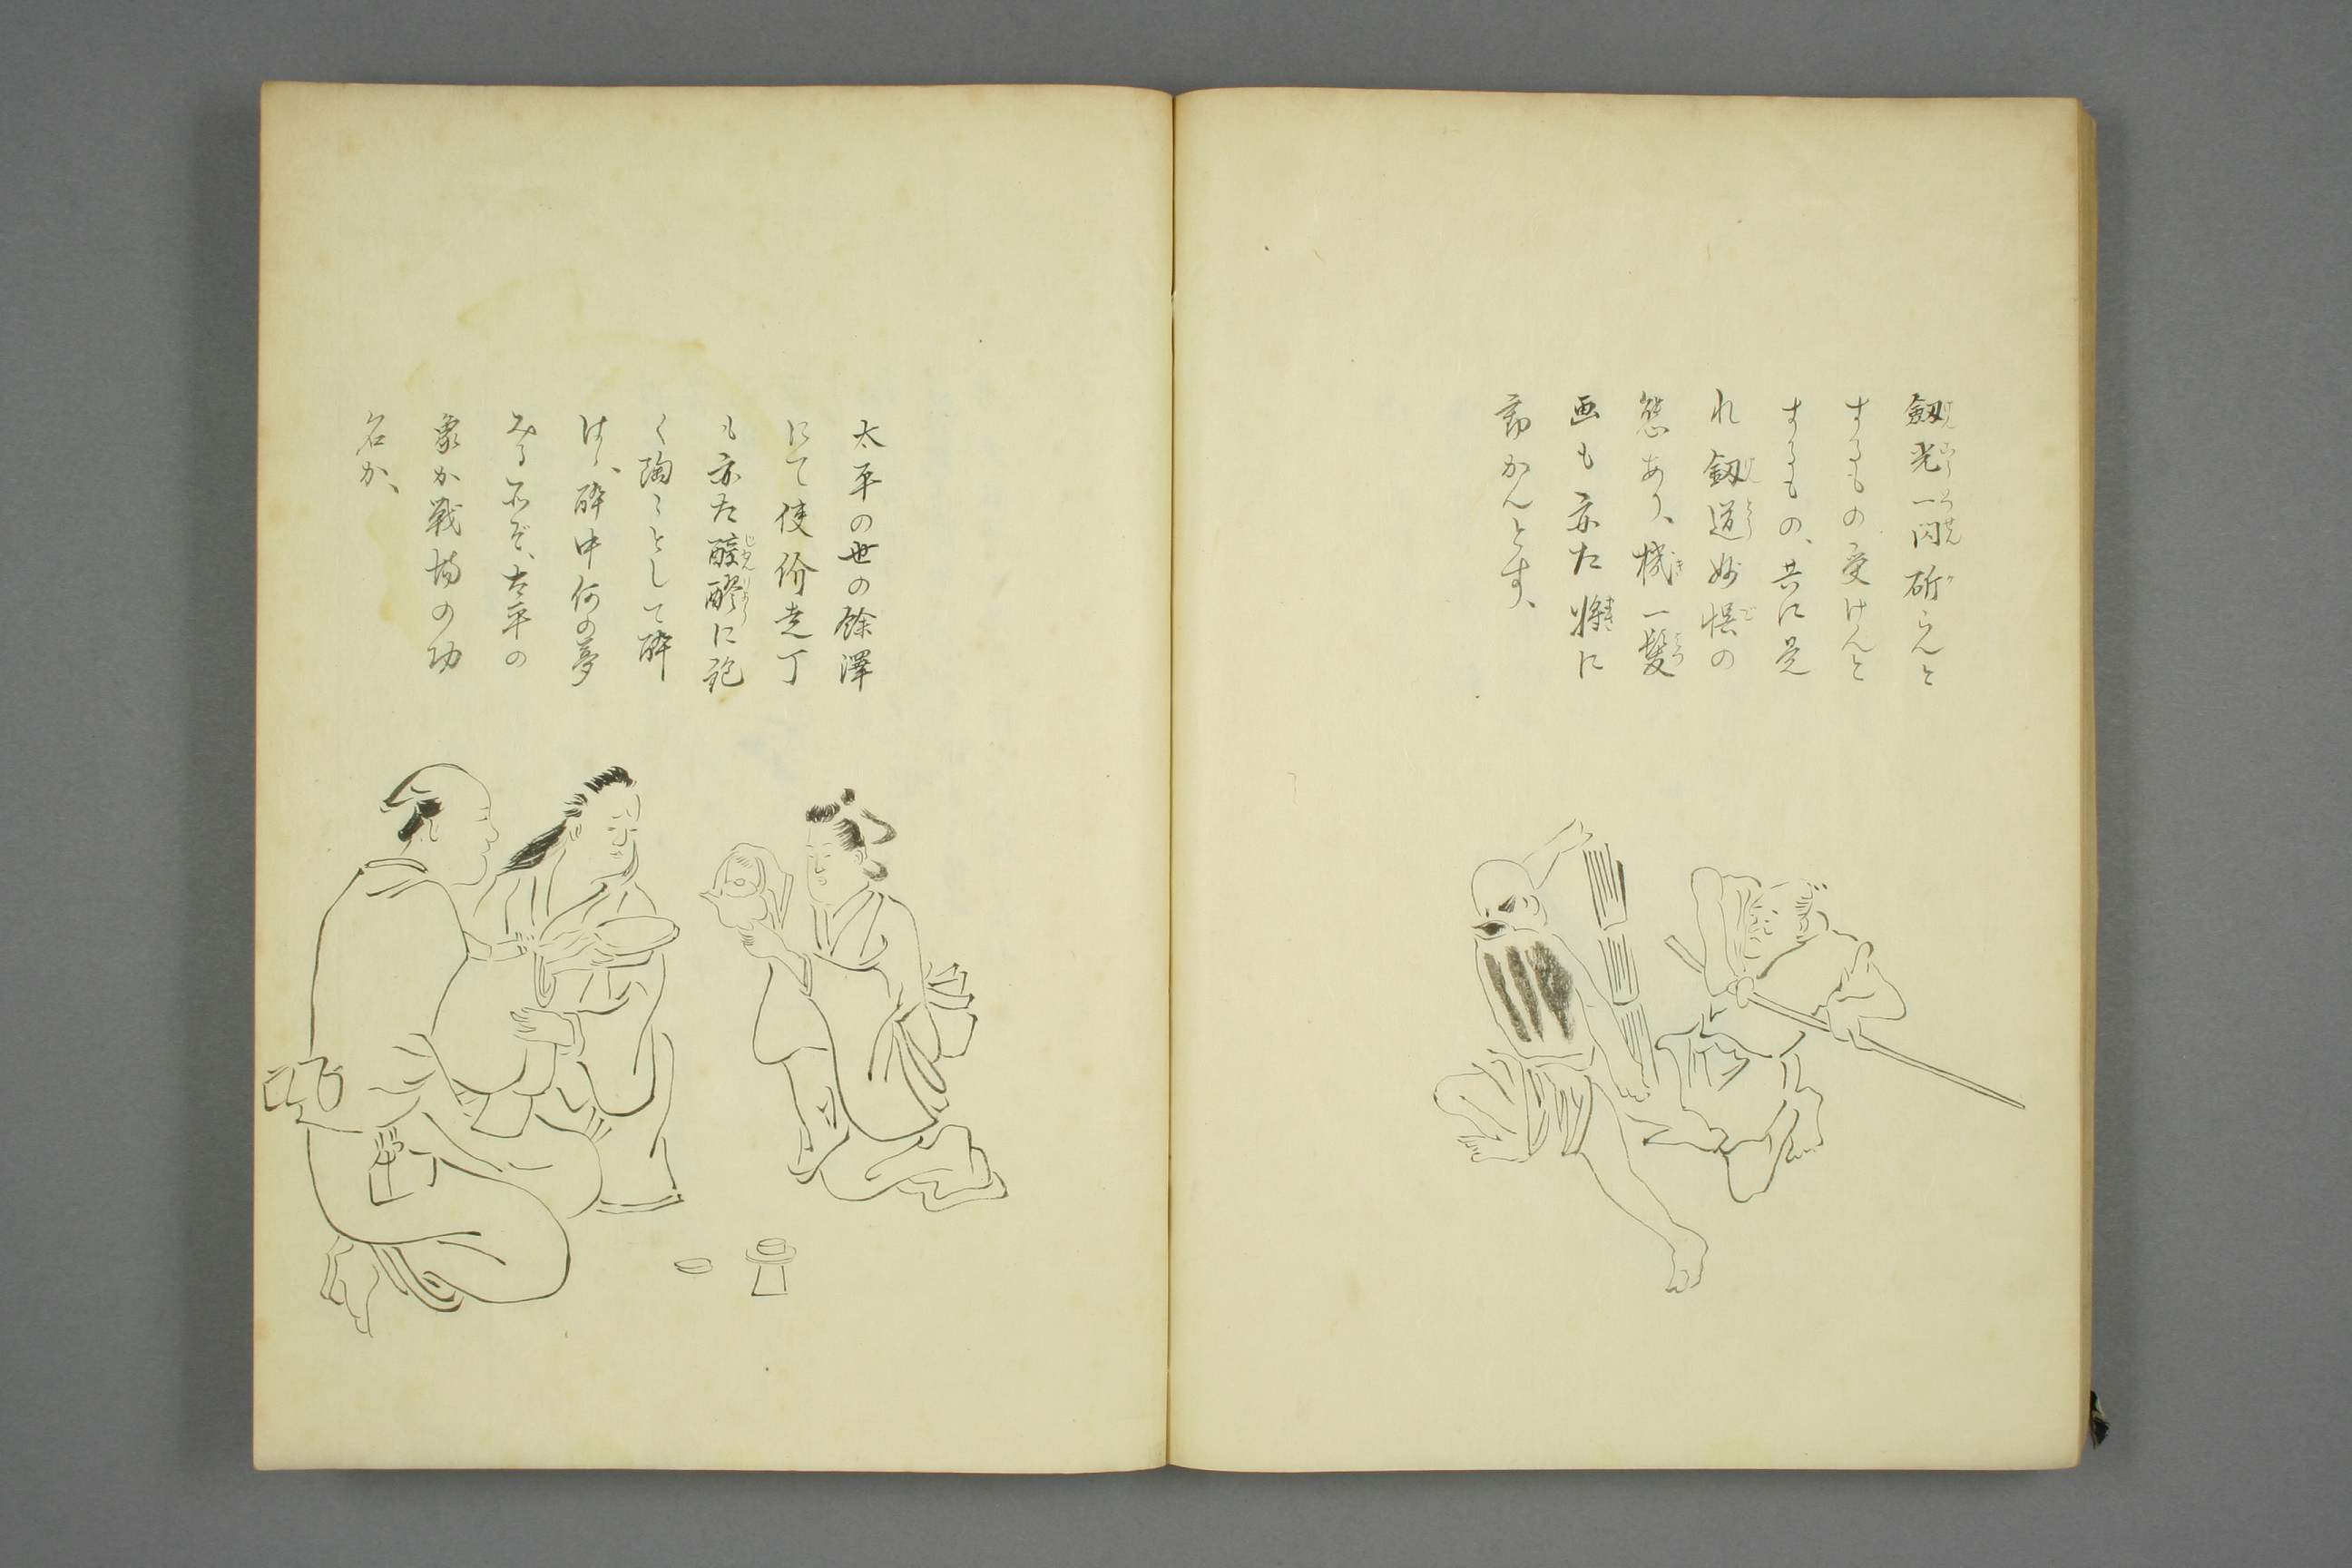 劔光一閃斫らんと
するもの受けんと
するもの、共に是
れ劔道妙悞の
態あり、機一髪
画も亦た将に
動かんとす、
太平の世の餘澤
にて使价走丁
も亦た醇醪に飽
く陶〻として酔
はゝ、酔中何の夢
みる所ぞ、太平の
象か戦場の功
名か、